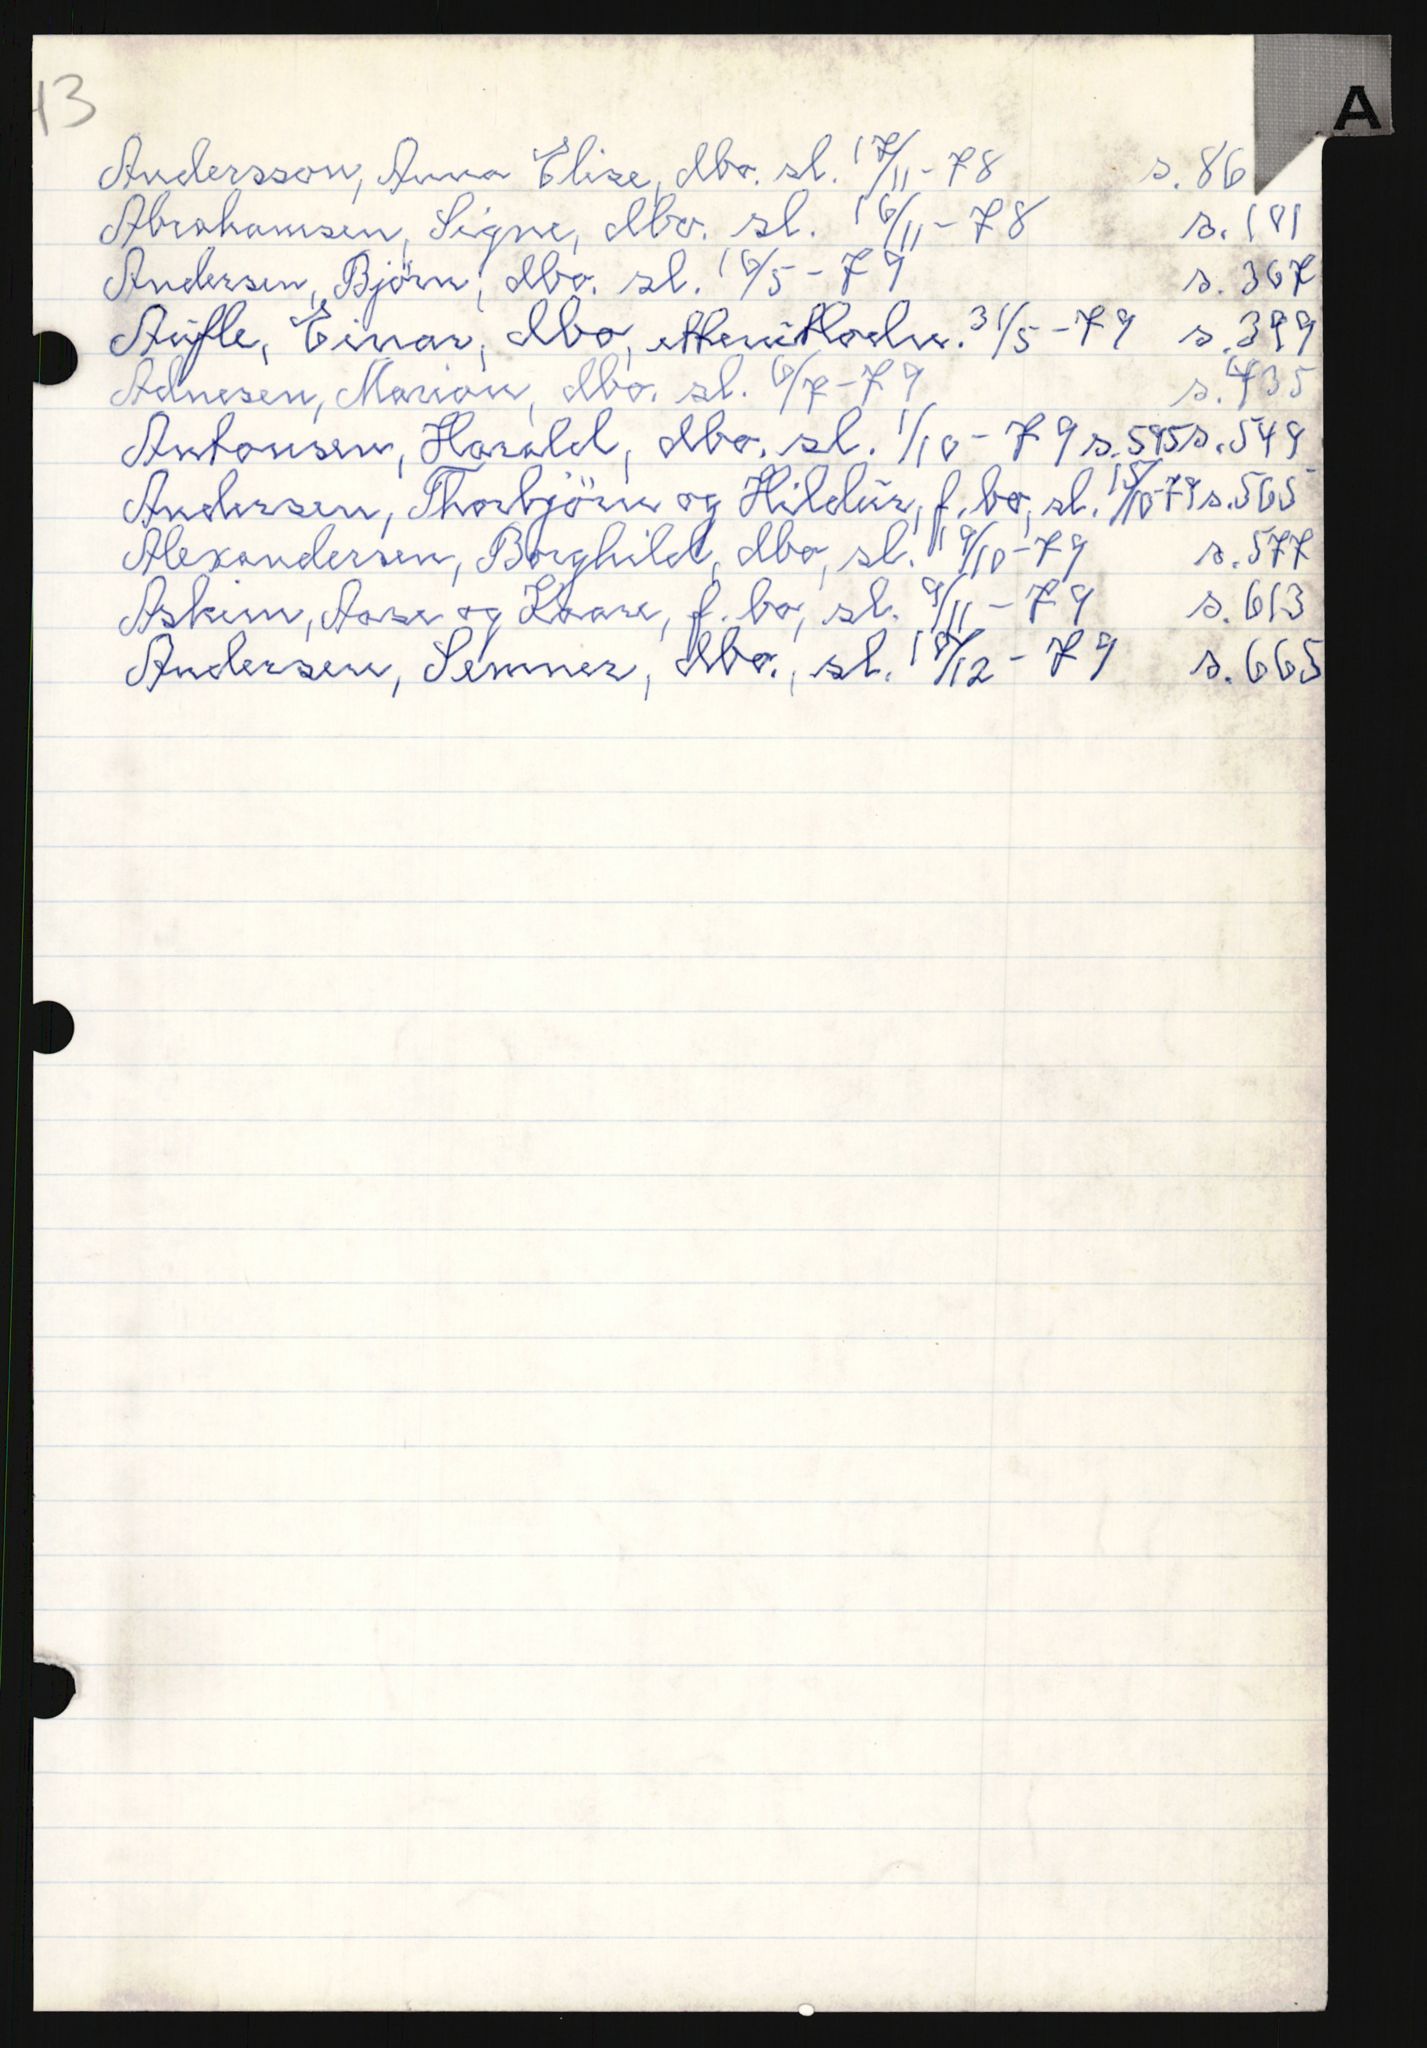 13
A
Andersson, Anna Elise, dbo. sl. 17/11-78 s. 86
Abrahamsen, Signe, dbo. sl. 16/11-78 s. 181
Andersen, Björn, dbo. sl. 16/5-79 s. 367
Aufle, Einar, dbo, 31/5-79 s. 399
Adnesen, Marion, dbo. sl. 6/7-79 s. 435
Antonsen, Harald, dbo. sl. 1/10-79 s. 595 s. 549
Andersen, Thorbjörn og Hildur, f. bo, sl. 15/10-79 s. 565
Alexandersen, Borghild, dbo, sl. 19/10-79 s. 577
Askim, Aase og Kaare, f. bo, sl. 9/11-79 s. 613
Andersen, Semner, dbo., sl. 18/12-79 s. 665